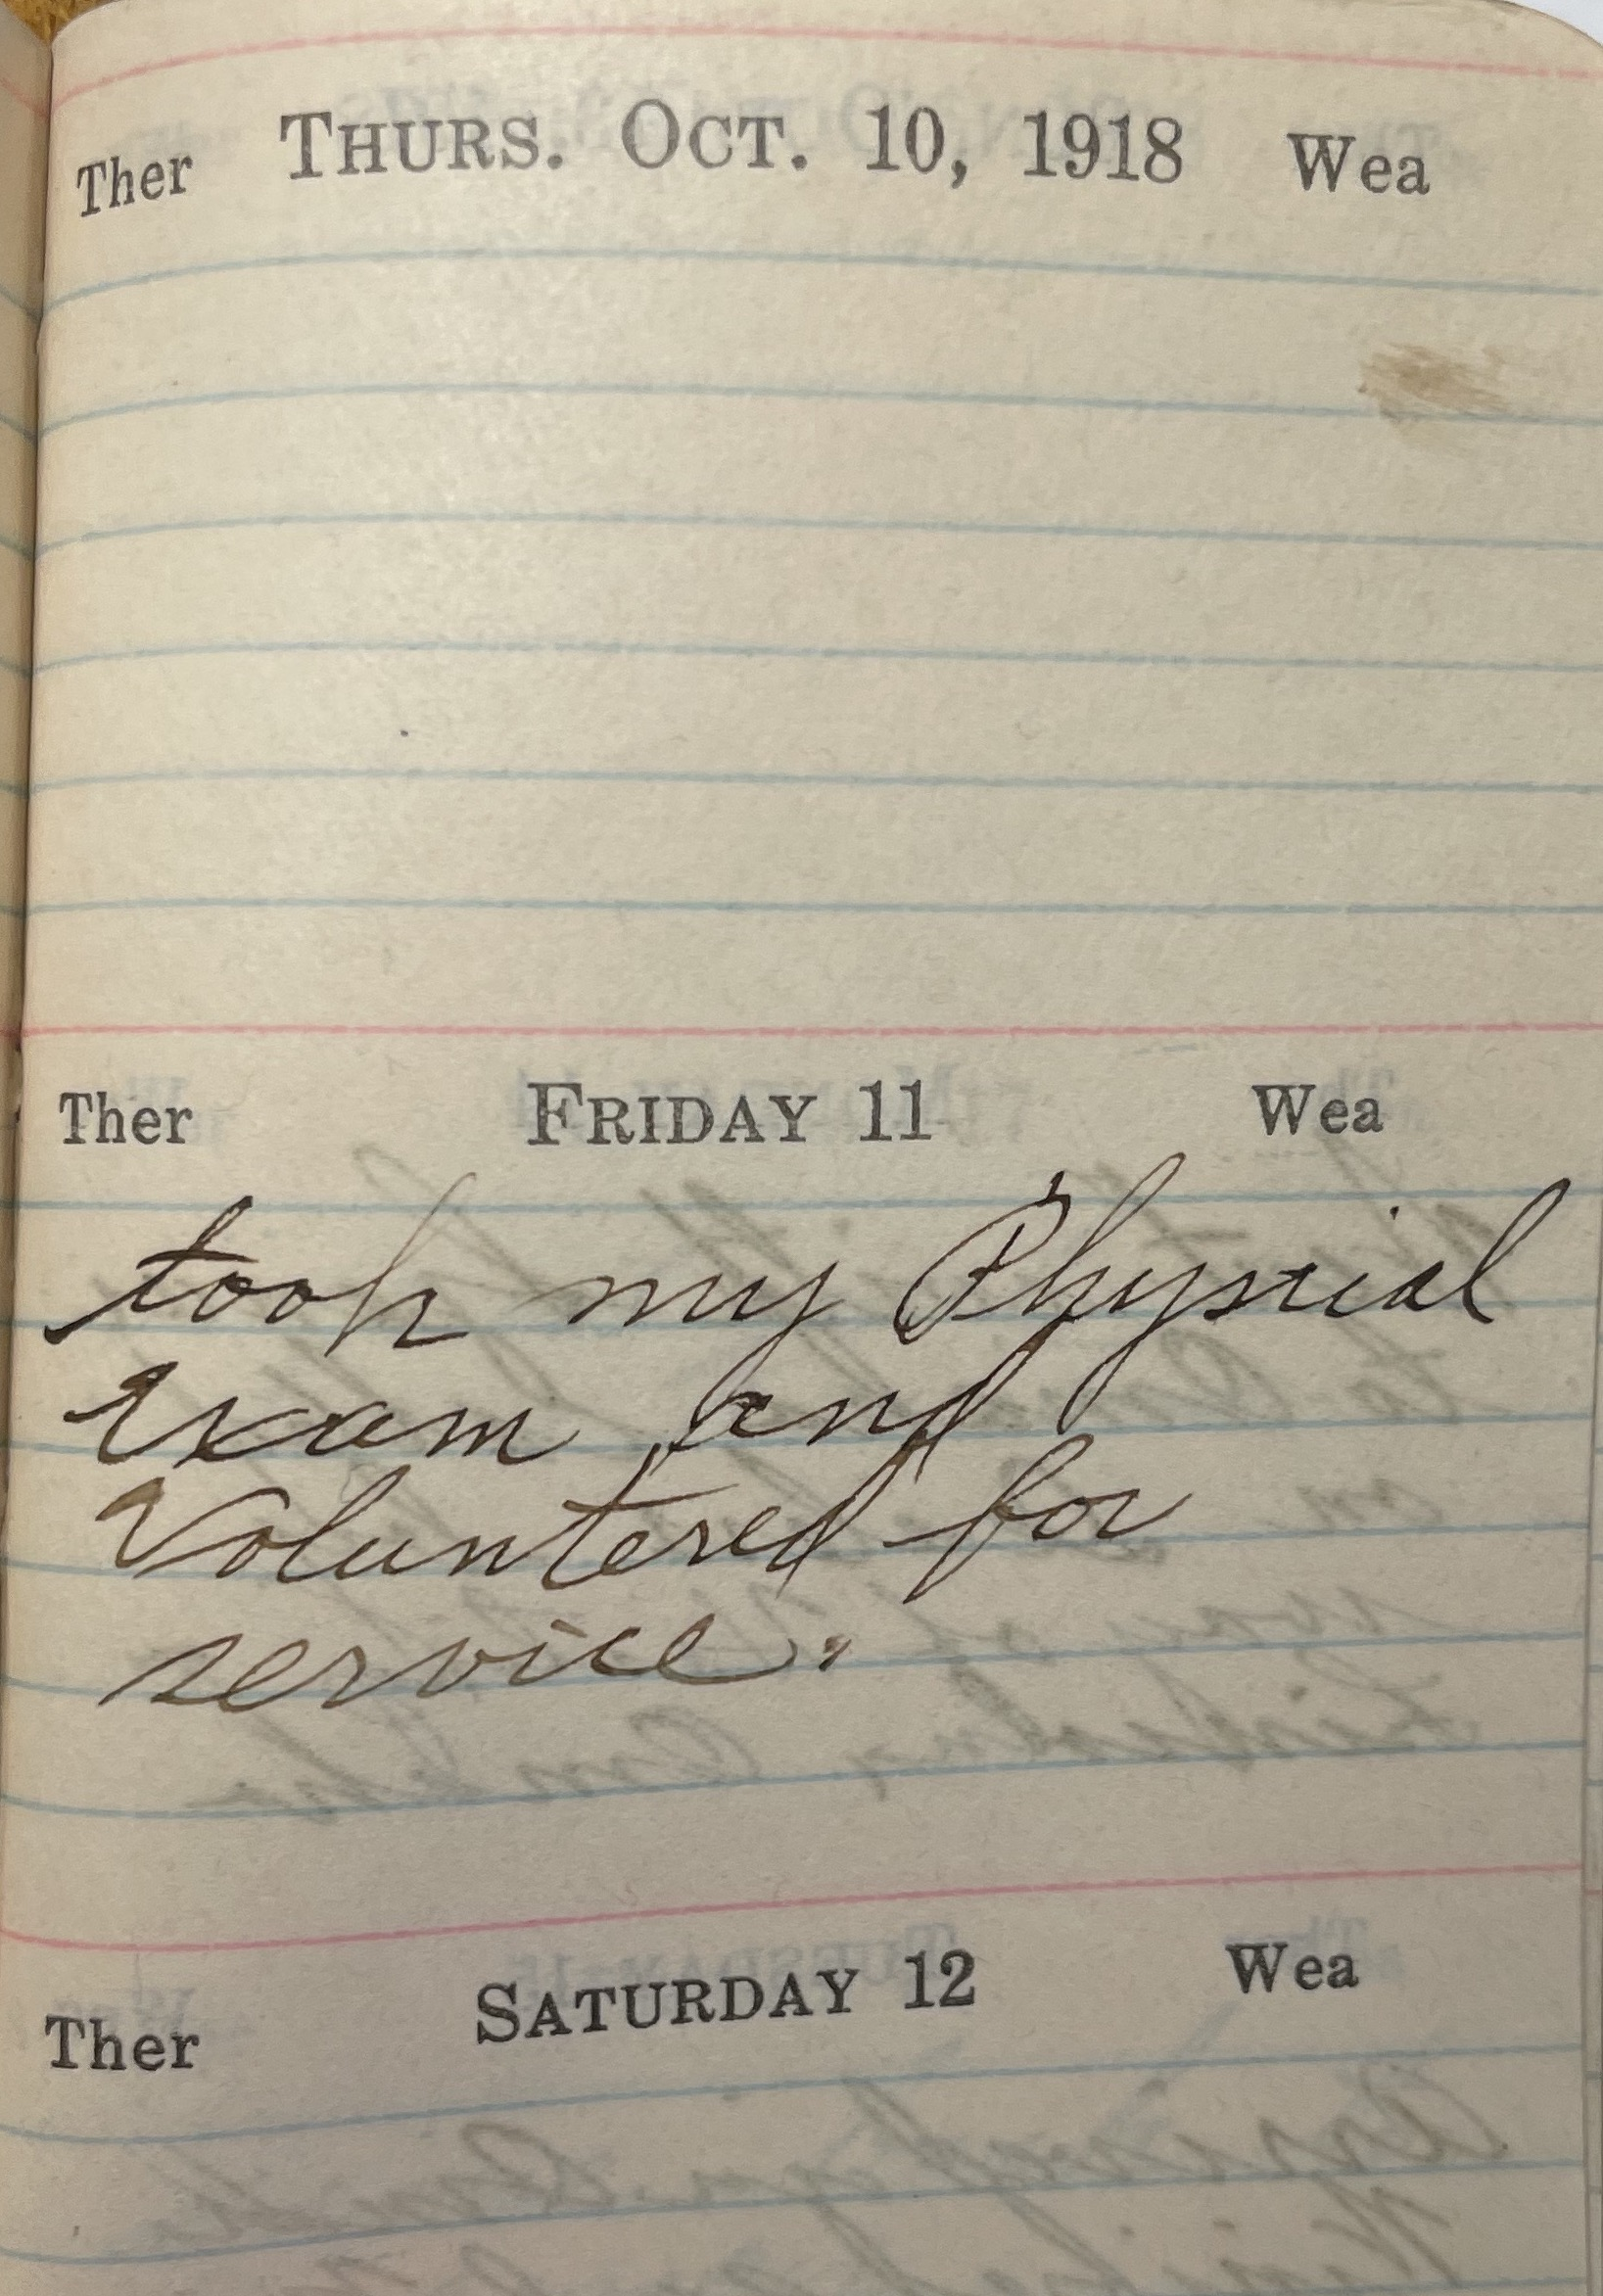 Ther THURS. OCT. 10, 1918 Wea
Ther FRIDAY 11 Wea
took my Physical
Exam and
Voluntered for
service.
Ther SATURDAY 12 Wea